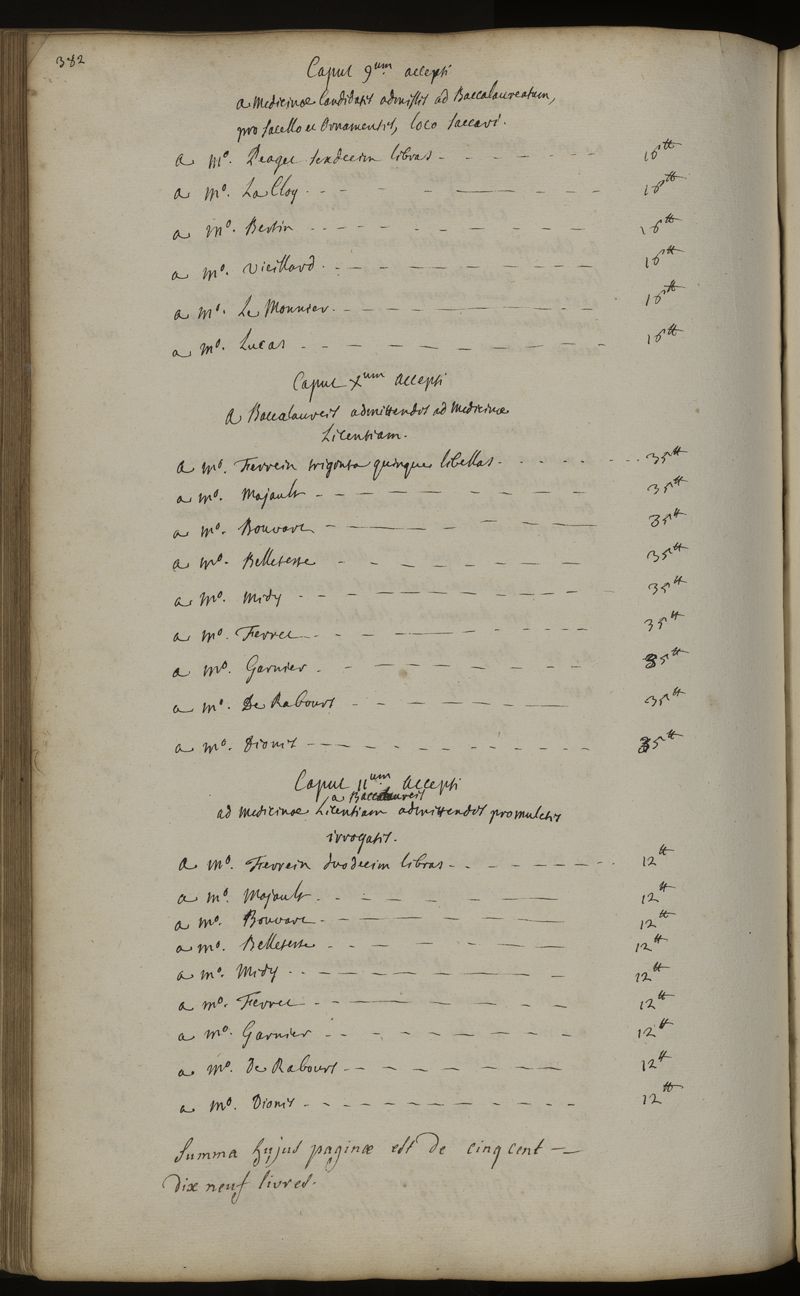 382
Caput 9um accepti
a Medicinae Candidatis admissis ad Baccalaureatum,
pro sacello et ornamentis, loco
a Mo. Peaget sexdecim libras - - - - - - - 16tt
a Mo. La Cloy - - - - - - - 16tt
a Mo. Bertin - - - - - - - 16tt
a Mo. Vieillard - - - - - - - 16tt
a Mo. Le Monnier - - - - - - - 16tt
a Mo. Lucas - - - - - - - 16tt
Caput Xum Accepti
A Baccalaureis admittendis ad Medicinae
Licentiam.
A Mo. Ferrein triginta quinque libellas - - - - - - - 35tt
a Mo. Majault - - - - - - - 35tt
a Mo. Bouvart - - - - - - - 35tt
a Mo. Belleteste - - - - - - - 35tt
a Mo. Midy - - - - - - - 35tt
a Mo. Ferret - - - - - - - 35tt
a Mo. Garnier - - - - - - - 35tt
a Mo. De Rabours - - - - - - - 35tt
a Mo. Dionis - - - - - - - 35tt
Caput 11um Accepti
a Baccalaureis
ad Medicinae Licentiam admittendis pro mulctis
irrogatis.
A Mo. Ferrein duodecim libras - - - - - - - 12tt
a Mo. Majault - - - - - - - 12tt
a Mo. Bouvart - - - - - - - 12tt
a Mo. Belleteste - - - - - - - 12tt
a Mo. Midy - - - - - - - 12tt
a Mo. Ferret - - - - - - - 12tt
a Mo. Garnier - - - - - - - 12tt
a Mo. De Rabours - - - - - - - 12tt
a Mo. Dionis - - - - - - - 12tt
Summa hujus paginae est de cinq cent —
Dix neuf livres.